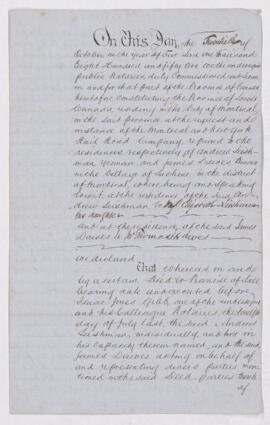 On this Day, the Twelfth of
October in the year of Our Lord one thousand
Eight Hundred and fifty two We the undersigned
public Notaries, duly Commissioned and sworn
in and for that part of the Province of Canada
heretofore Constituting the Province of Lower
Canada residing in the City of Montreal,
in the said province, at the request and
instance of the Montreal and New York
Rail Road Company, repaired to the
residences respectively of Andrew
Yeoman, and James Dawes Brewer
in the of Lachine, in the
district of Montreal, where being and speaking
to wit, at the residence of the said
Andrew to
his daughter
and at the residence of the said James
Dawes to Mr Thomas Dawes
We declared
That Whereas in and
by a certain Deed or Promise of Sale
bearing date and executed before
Isaac Jones Gibb, one of the undersigned
and his Colleague Notaries, the
day of July last, the said Andrew
individually, and also in
his capacity therein named, and the said
James Dawes acting on behalf of
and representing divers parties men-
tioned in the said Deed parties thereto
of